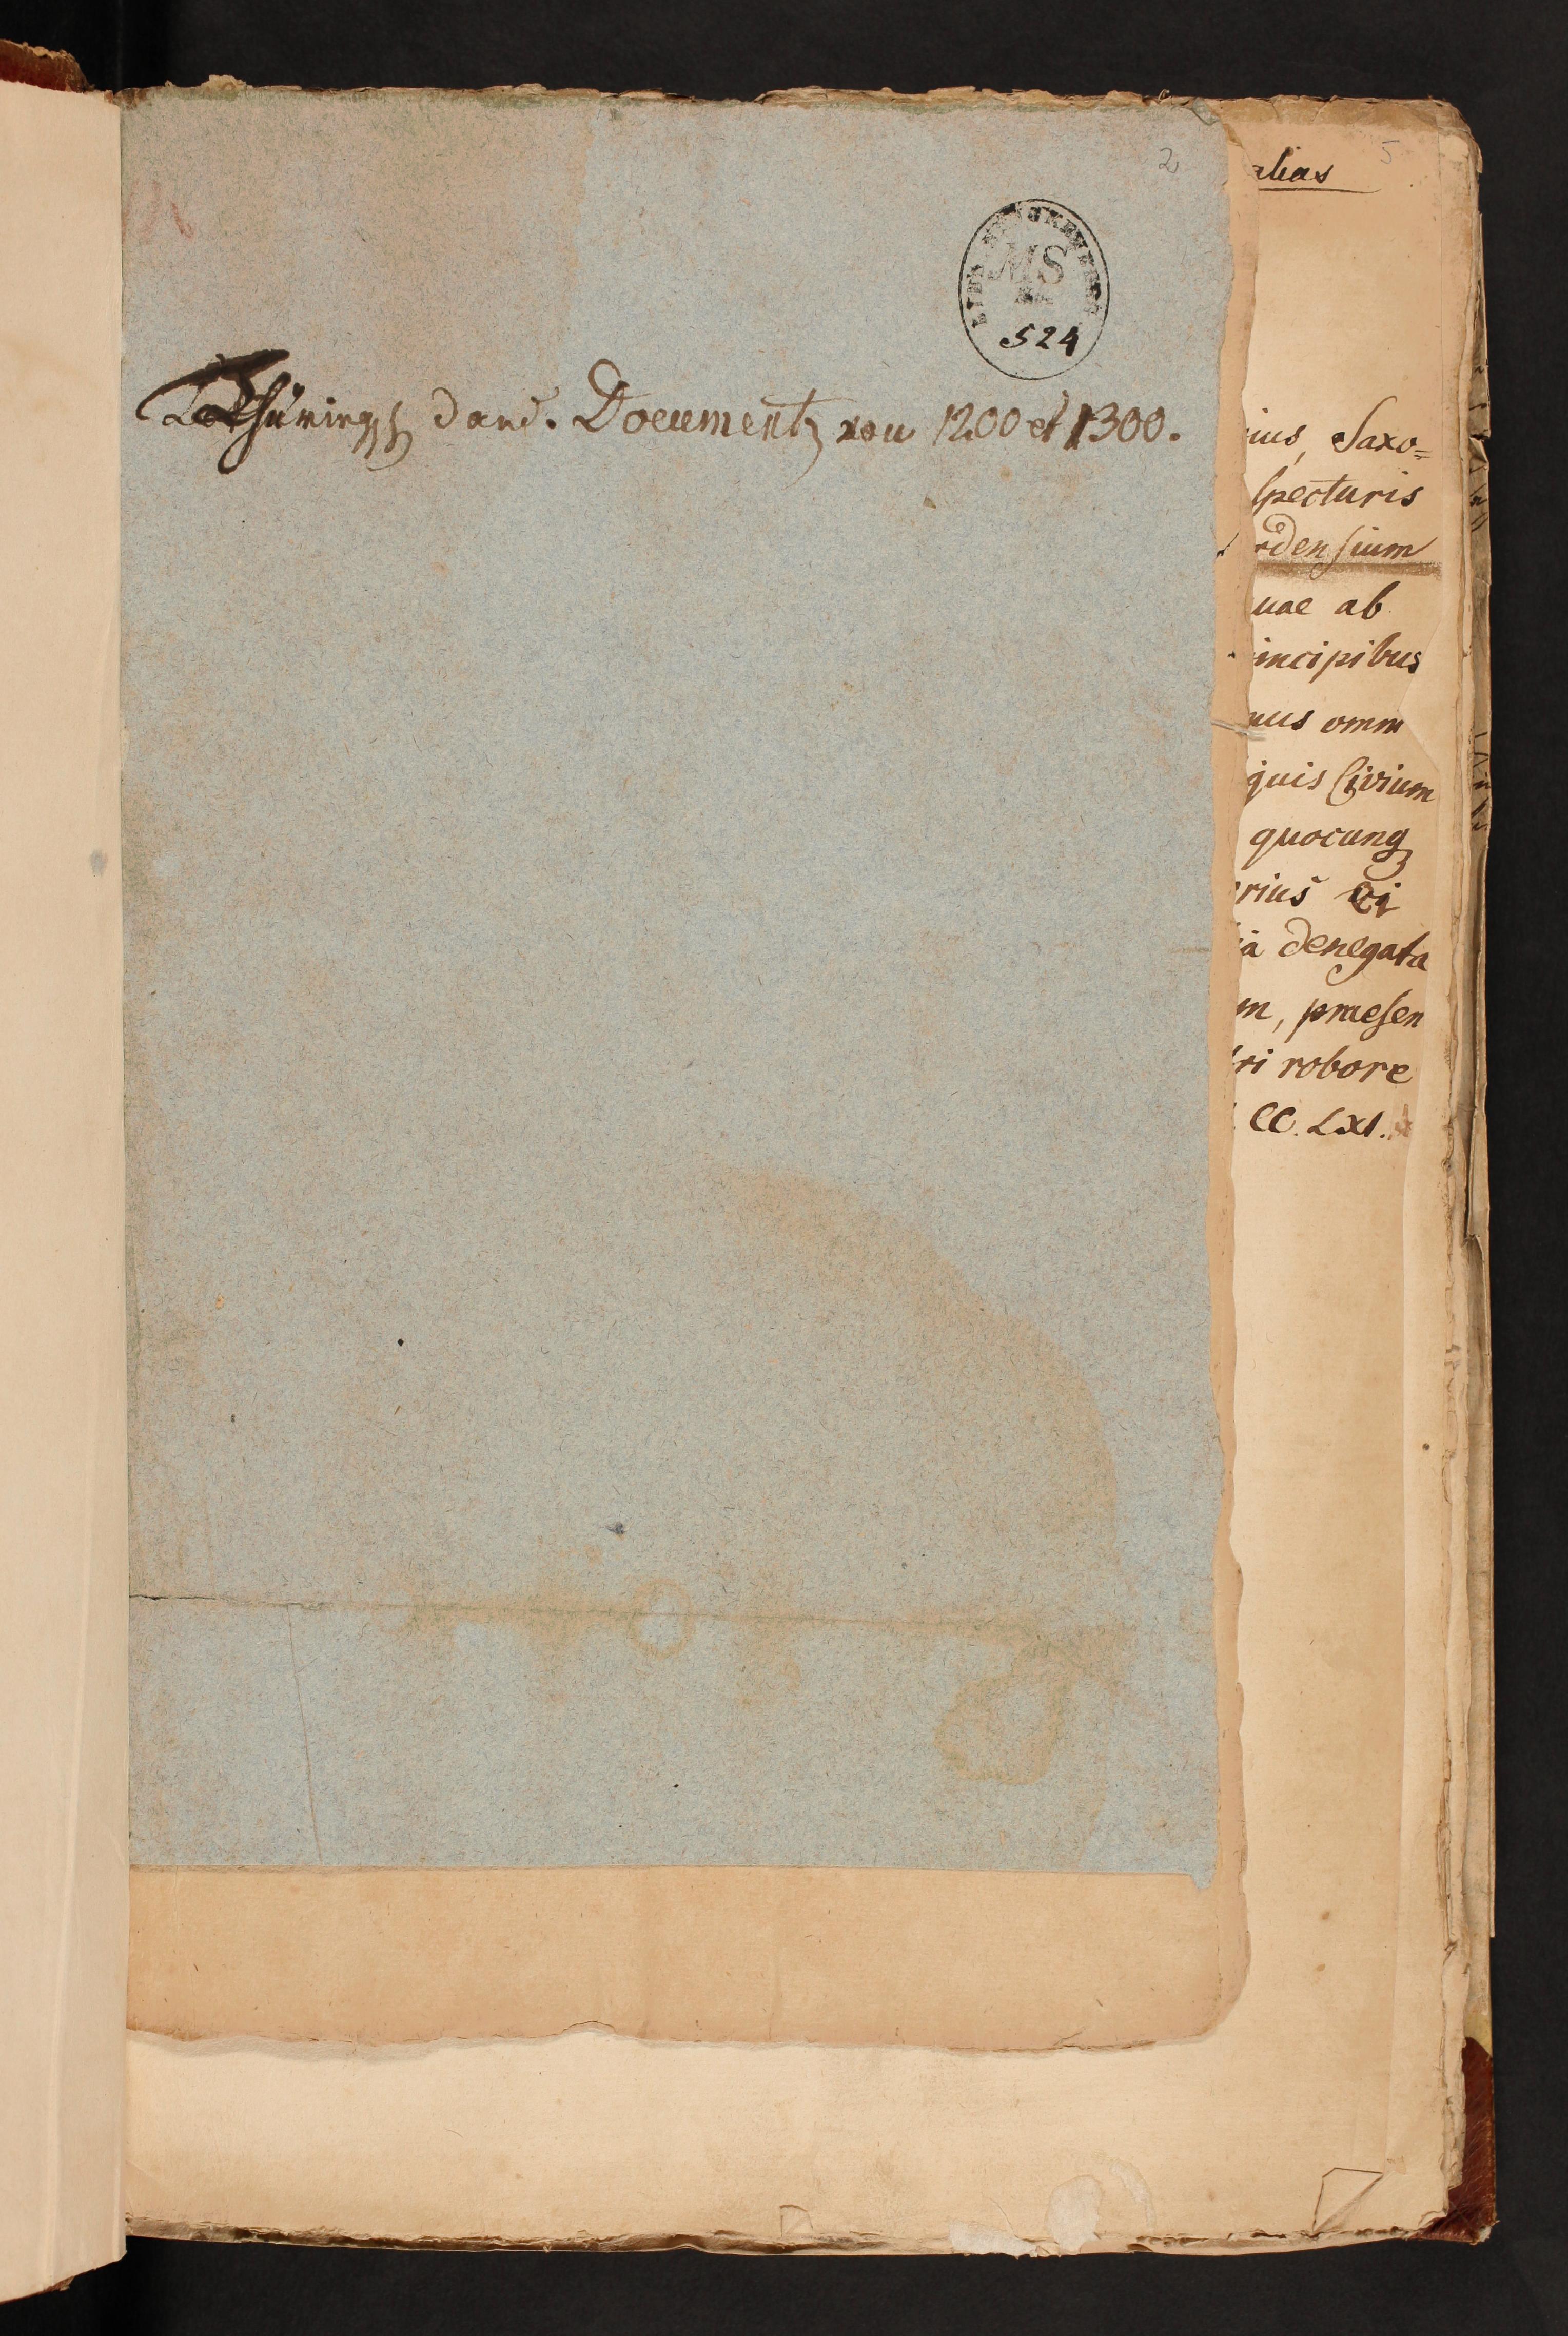 2
MS
524
Documenta von 1200 et 1300.
5
alias
ius, Saxo=
specturis
rdensium
uae ab
incipibus
mus omni
quis Civium
quocunq
rius ei
ia denegata
m, praesen
tri robore
CC. LXI.